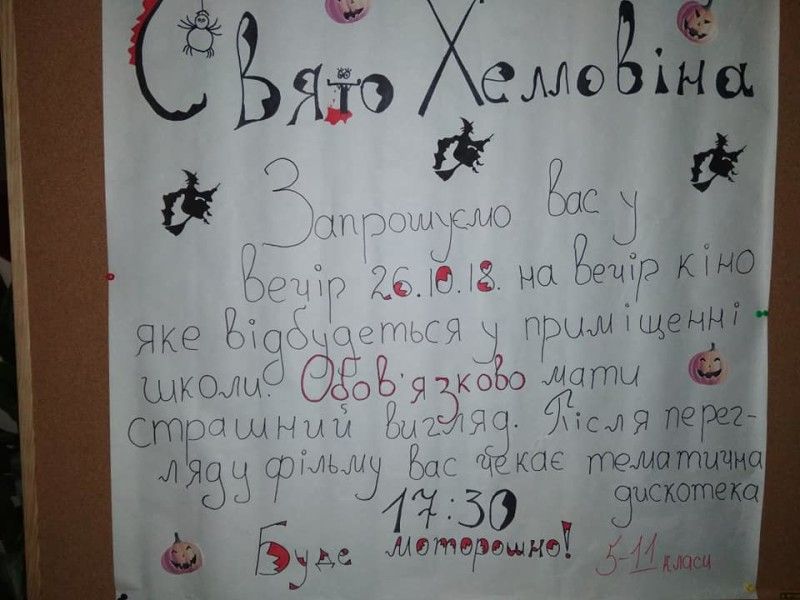 Свято Хелловіна
Запрошуємо вас у
вечір 26.10.18. на вечір кіно
яке відбудеться у приміщенні
школи. Обов'язково мати
страшний вигляд. Після перег-
ляду фільму вас чекає тематична
дискотека
17:30
Буде моторошно!
5-11 класи